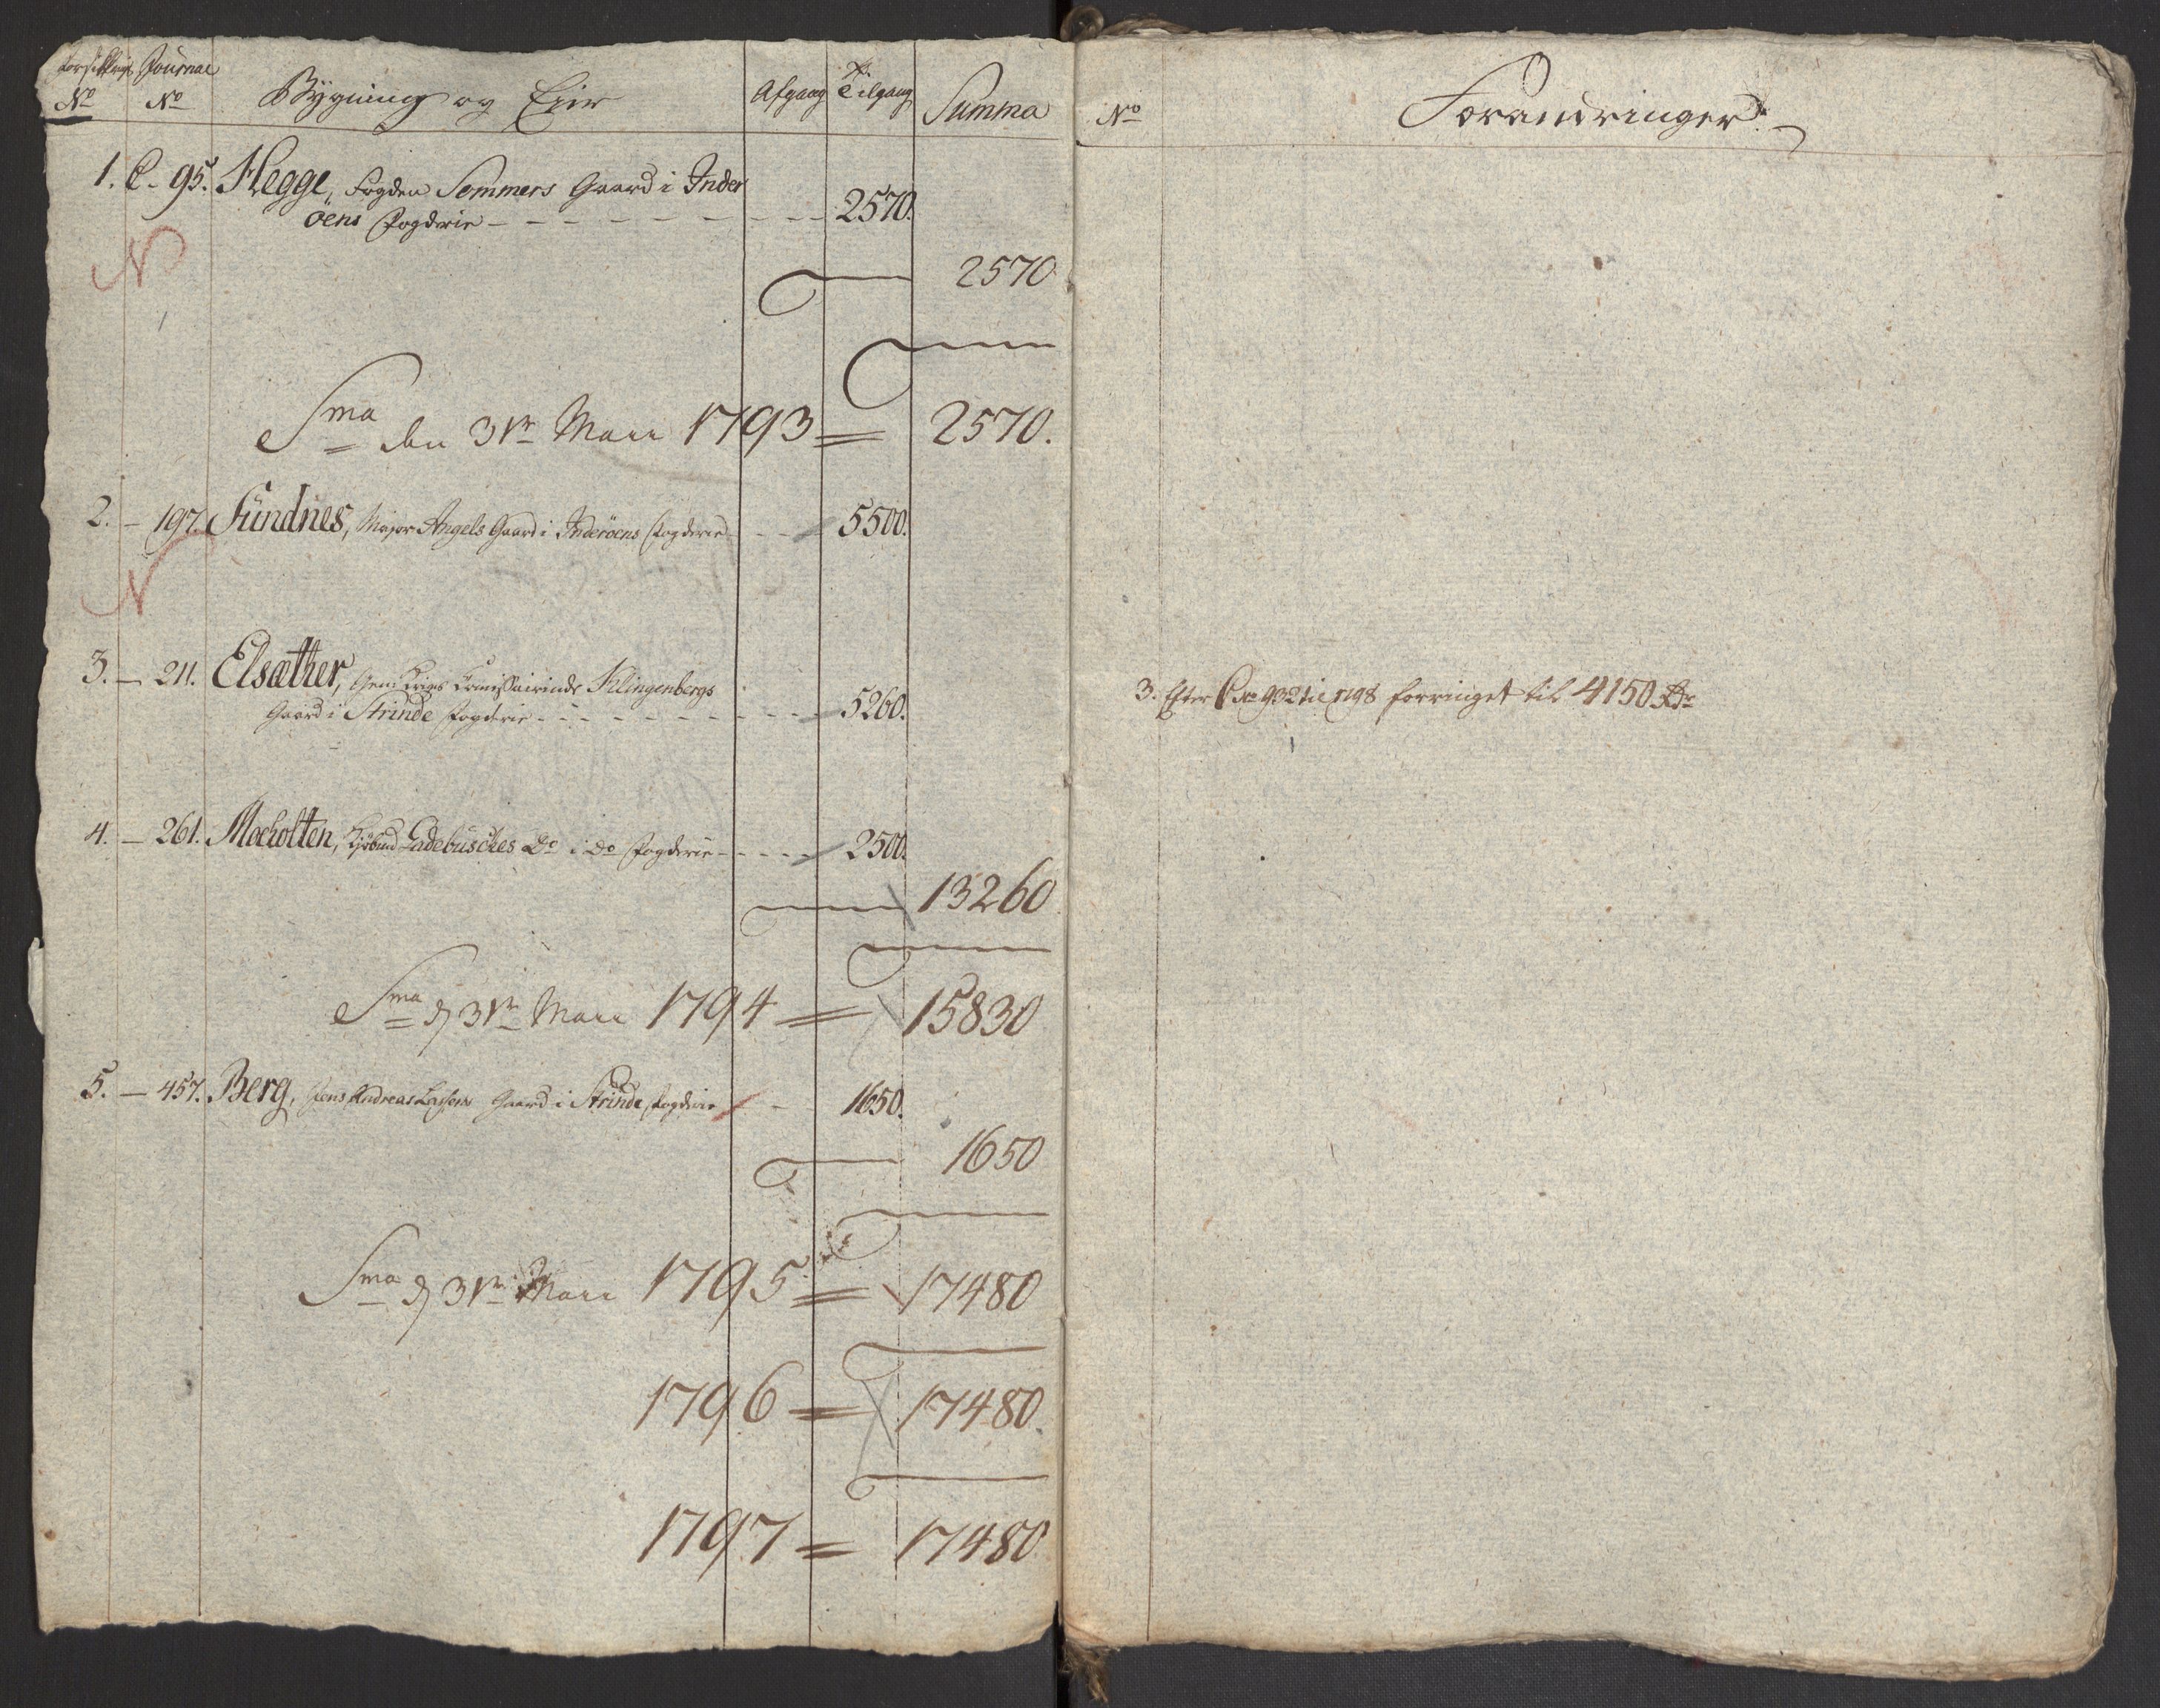 Forsikkrings Journal
No No Bÿgning og Eier Afgang Tilgang Summa
1. C. 95. Hegge, Fogden Sommers Gaard i Inder
öens Fogderie - - - - - - - - 2570.
2570
Sma den 31te Marti 1793 = 2570.
2. - 197. Sundnes, Major Angels Gaard i Inderöens Fogderie - - 5500.
3. - 211. Elsæther, Gen: Krigs Commissairinde Klingenbergs
Gaard i Strinde Fogderie - - - - - - - - 5260.
4. - 261. Mocholten, Kjöbmd Ladebusches Do i Do Fogderie - - - - 2500.
13260
Sma d 31te Marti 1794 = 15830
5. - 457. Berg, Jens Andreas Lassens Gaard i Strinde Fogderie - - 1650.
1650
Sma d 31te Marti 1795 = 17480
1796 = 17480.
1797 = 17480
No Forandringer. -
3. Efter C No 932 til 1798 forringet til 4150 Rdr